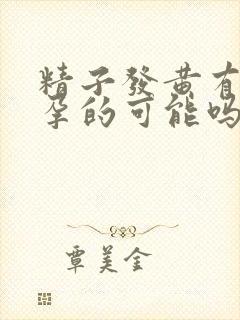 精子發黄有
孕的可能吗
覃美金